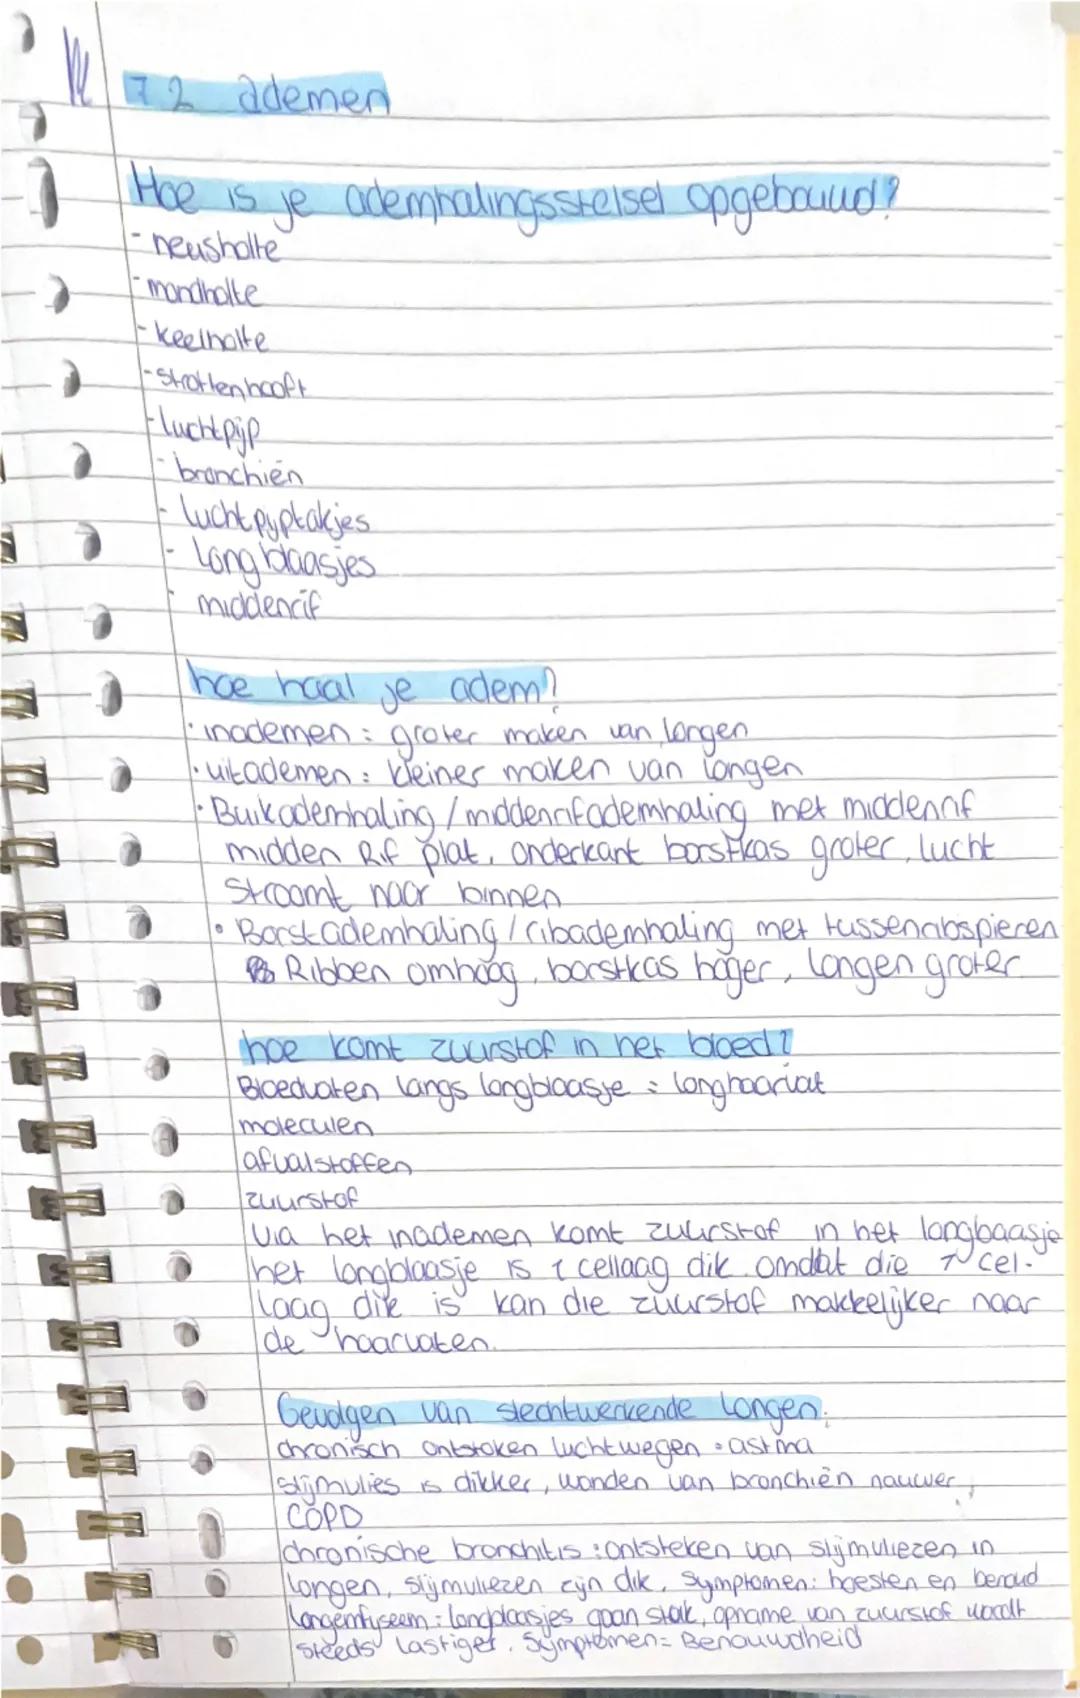 7.2 ademen
Hoe is je ademhalingsstelsel opgebouwd?
- neusholte
- mondholte
- keelholte
- strottenhooft
- luchtpijp
- bronchiën
- luchtpyptakjes
- longblaasjes
middenrif
hoe haal je adem?
· inademen: groter maken van longen
· uitademen: kleiner maken van longen
· Buikademhaling/middenrifademhaling met middenrif
midden Rif plat, onderkant borstkas groter, lucht
stroomt naar binnen
· Borstademhaling/ribademhaling met tussenribspieren
Ribben omhoog, borstkas hoger, longen groter
hoe komt zuurstof in het bloed?
Bloedvaten langs longblaasje = longhaarvat
moleculen
afvalstoffen
zuurstof
Via het inademen komt zuurstof in het longbaasje
het longblaasje is 1 cellaag dik. omdat die 1 cel-
laag dik is kan die zuurstof makkelijker naar
de haarvaten.
Gevolgen van slechtwerkende longen:
chronisch ontstoken luchtwegen = astma
slijmvlies is dikker, wanden van bronchiën nauwer,
COPD
chronische bronchitis: ontsteken van slijmvliezen in
longen, slijmvliezen zijn dik, symptomen: hoesten en benaud
Longemfyseem: longblaasjes gaan stuk, opname van zuurstof wordt
steeds lastiger. Symptomen= Benouwdheid